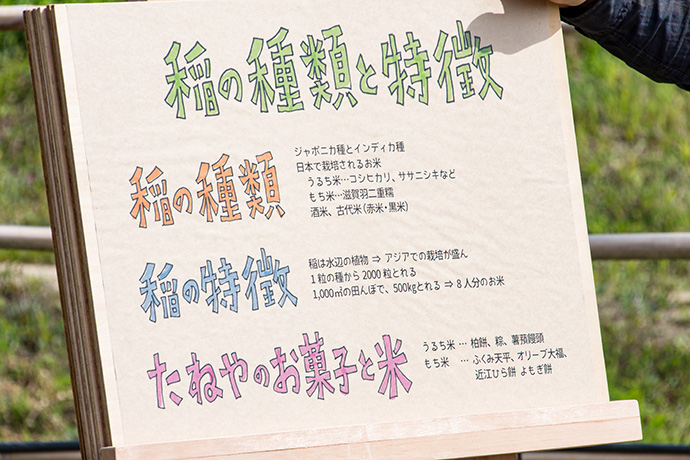 稲の種類と特徴
稲の種類
ジャポニカ種とインディカ種
日本で栽培されるお米
うるち米…コシヒカリ、ササニシキなど
もち米…滋賀羽二重糯
酒米、古代米(赤米・黒米)
稲の特徴
稲は水辺の植物 ⇒ アジアでの栽培が盛ん
1粒の種から2000粒とれる
1,000㎡の田んぼで、500kgとれる ⇒ 8人分のお米
たねやのお菓子と米
うるち米 … 柏餅、粽、薯蕷饅頭
もち米 … ふくみ天平、オリーブ大福、
近江ひら餅 よもぎ餅